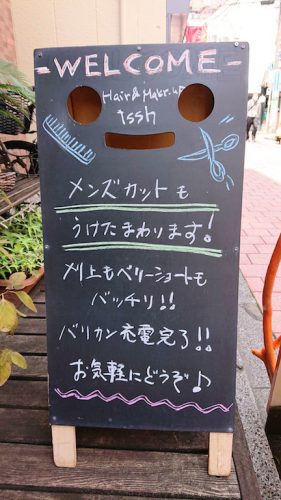 -WELCOME-
Hair & Make-up
tssh
メンズカットも
うけたまわります!
刈上もベリーショートも
バッチリ!!
バリカン充電完了!!
お気軽にどうぞ♪